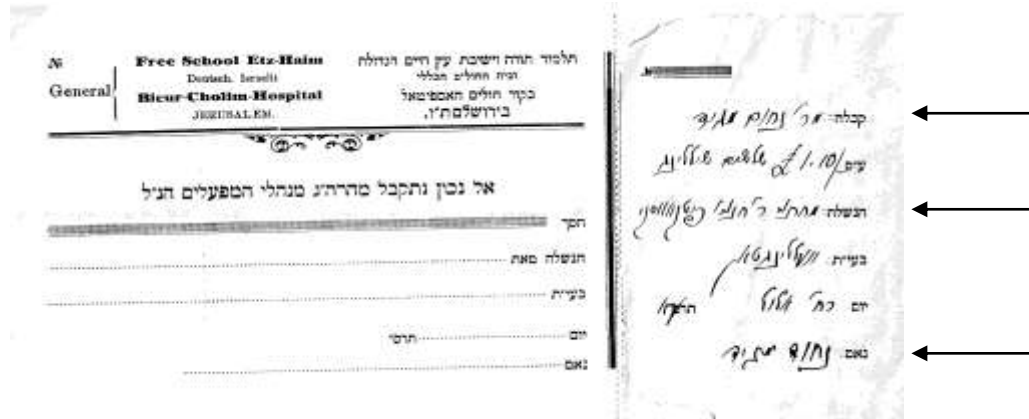 №
General
Free School Etz-Haim
Deutsch. Israelit
Bicur-Cholim-Hospital
JERUSALEM.
תלמוד תורה וישיבת עץ חיים הגדולת
ובית החולים הכללי
בקור חולים האספיטאל
בירושלם ת"ו.
אל נכון נתקבל מהרה"ג מנהלי המפעלים הנ"ל
הסך
הנשלח מאת
בעי"ת
יום תרס"י
נאם
קבלתי מר' נחום מגיד
£ 1.10/ שלשים שיללינג
הנשלח מאת ר'
בעי"ת וועללינגטאן
יום רח' אלול
נאם נחום מגיד